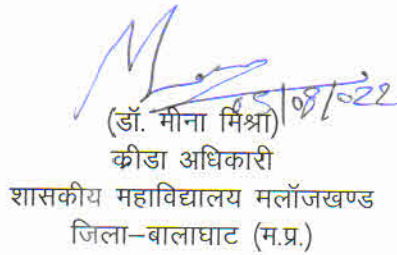 05/08/022
(डॉ. मीना मिश्रा)
क्रीडा अधिकारी
शासकीय महाविद्यालय मलॉजखण्ड
जिला–बालाघाट (म.प्र.)